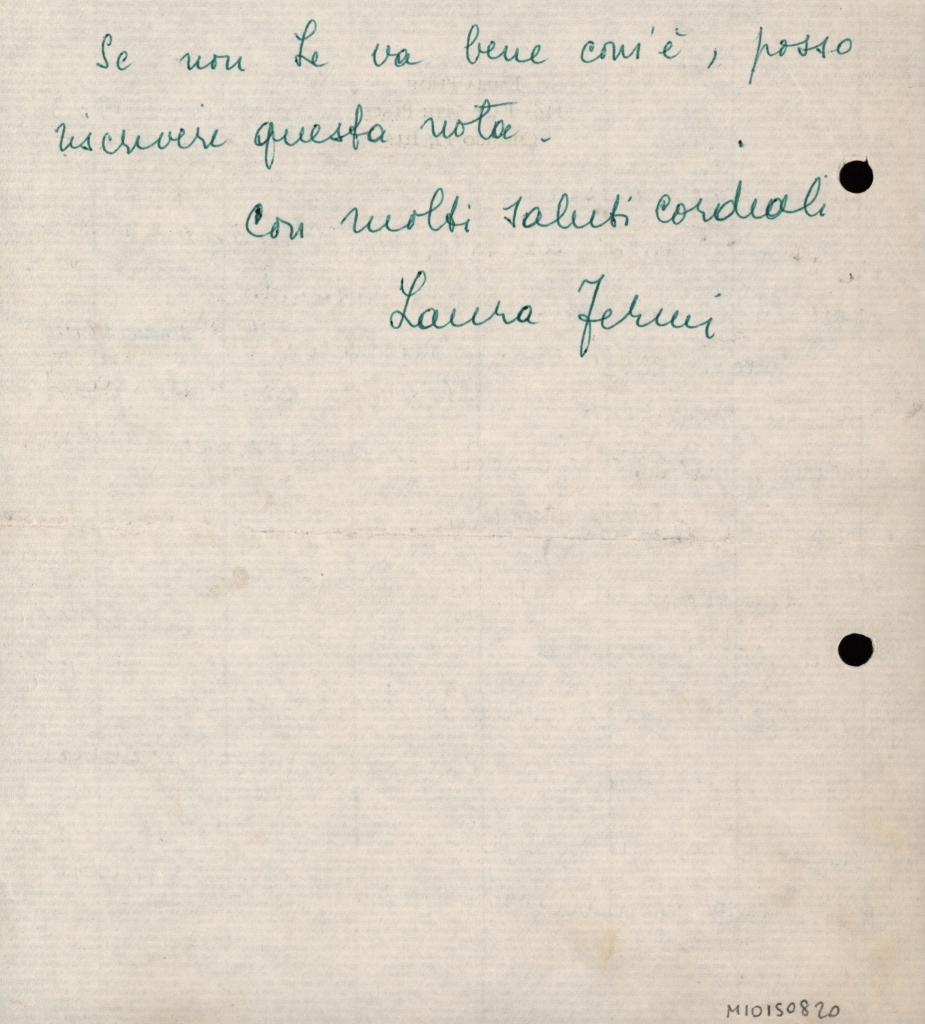 Se non Le va bene com'è, posso
riscrivere questa nota.
Con molti saluti cordiali
Laura Fermi
M10150820